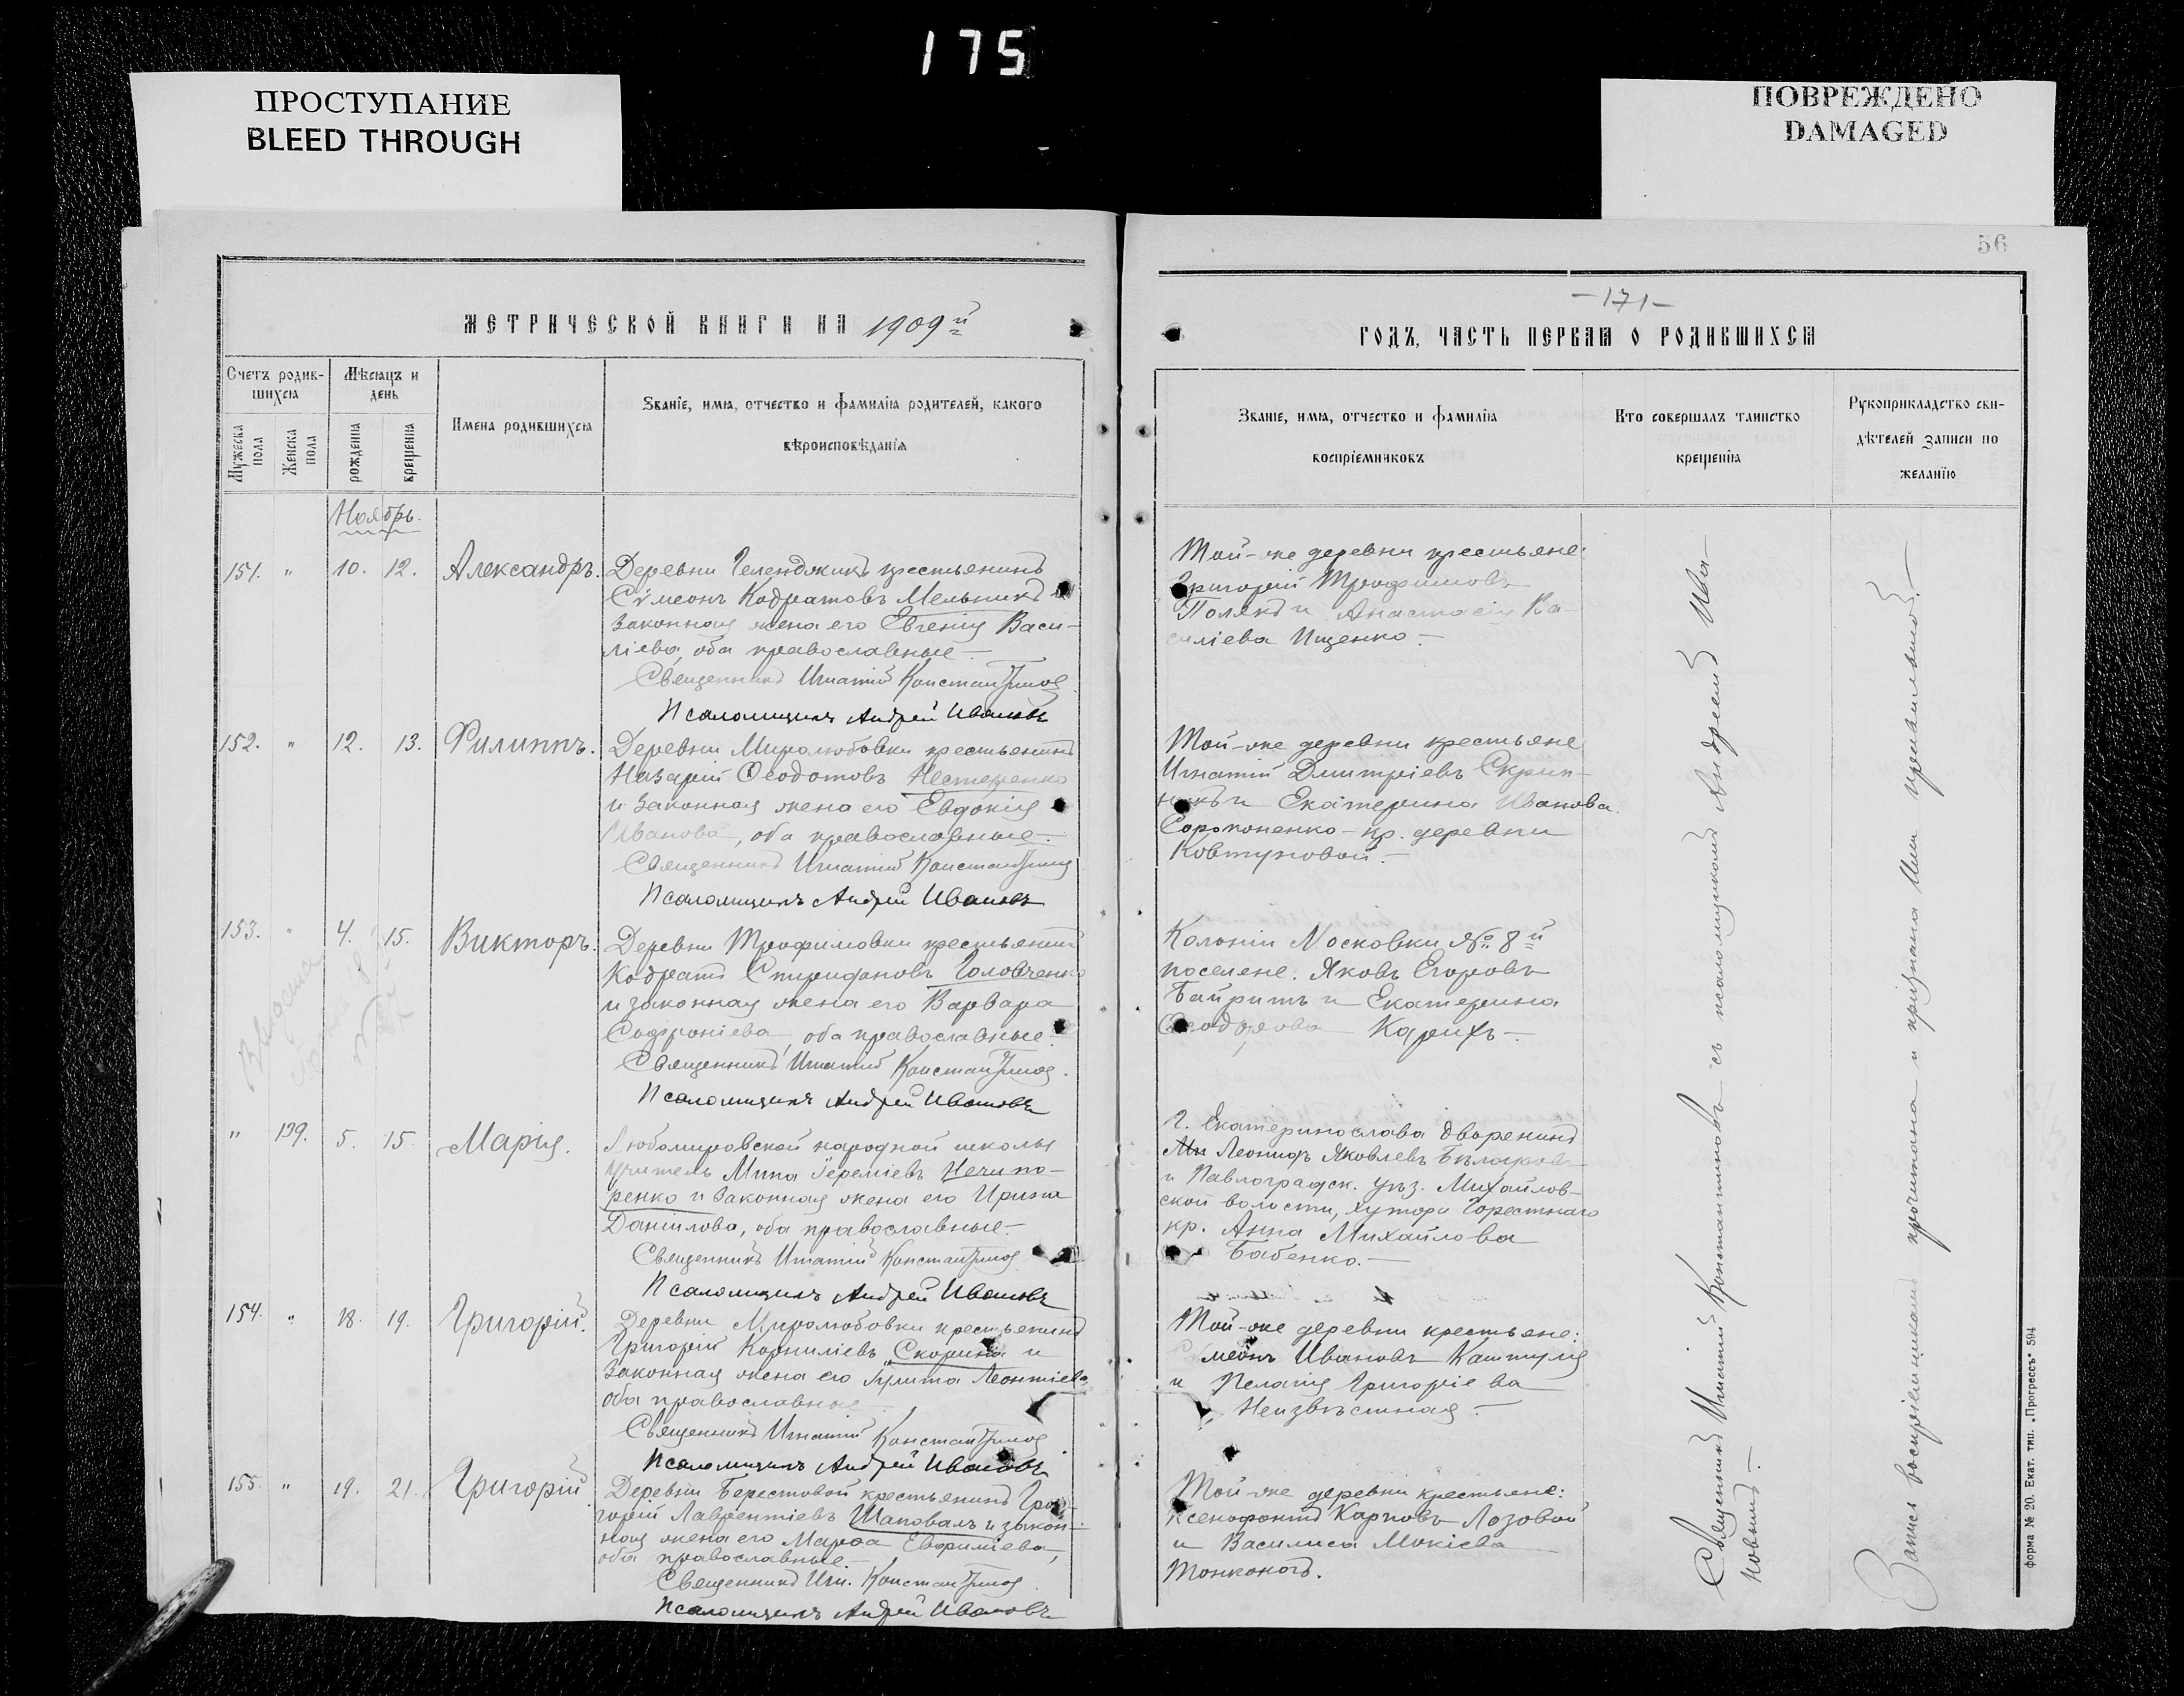 175
ПРОСТУПАНИЕ
BLEED THROUGH
ПОВРЕЖДЕНО
DAMAGED
МЕТРИЧЕСКОЙ КНИГИ НА 1909й
Счетъ родившихся
Мѣсяцъ и день
Мужеска пола
Женска пола
рожденія
крещенія
Имена родившихся
Званіе, имя, отчество и фамилія родителей, какого
вѣроисповѣданія
Ноябрь.
151. " 10. 12. Александръ.
Деревни Геленджикъ крестьянинъ
Сѵмеонъ Кодратовъ Мельникъ и
законная жена его Евгенія Васи-
ліева, оба православные.–
Священникъ Игнатій Константиновъ
Псаломщикъ Андрей Ивановъ
152. " 12. 13. Филиппъ.
Деревни Миролюбовки крестьянинъ
Назарій Ѳеодотовъ Нестеренко
и законная жена его Евдокія
Иванова, оба православные.–
Священникъ Игнатій Константиновъ
Псаломщикъ Андрей Ивановъ
153. " 4. 15. Викторъ.
Деревни Трофимовки крестьянинъ
Кодратъ Спиридоновъ Головченко
и законная жена его Варвара
Софроніева, оба православные.
Священникъ Игнатій Константиновъ.
Псаломщикъ Андрей Ивановъ
" 139. 5. 15. Марія.
Любомировской народной школы
учитель Мина Іереміевъ Нечипо-
ренко и законная жена его Ирина
Даніилова, оба православные.–
Священникъ Игнатій Константиновъ
Псаломщикъ Андрей Ивановъ
154. " 18. 19. Григорій.
Деревни Миролюбовки крестьянинъ
Григорій Корниліевъ Скорина и
законная жена его Леонтіева,
оба православные.
Священникъ Игнатій Константиновъ
Псаломщикъ Андрей Ивановъ
155. " 19. 21. Григорій.
Деревни Берестовой крестьянинъ Гри-
горій Лаврентіевъ Шаповалъ и закон-
ная жена его Марѳа
оба православные.–
Священникъ Игн. Константиновъ.
Псаломщикъ Андрей Ивановъ
56
–171–
ГОДЪ, ЧАСТЬ ПЕРВАЯ О РОДИВШИХСЯ
Званіе, имя, отчество и фамилія
воспріемниковъ
Кто совершалъ таинство
крещенія
Рукоприкладство сви-
дѣтелей записи по
желанію
Той-же деревни крестьяне:
Григорій Трофимовъ
Полякъ и Анастасія Ва-
силіева Ищенко.–
Той-же деревни крестьяне
Игнатій Дмитріевъ Скрип-
никъ и Екатерина Иванова
Сороконенко – кр. деревни
Ковтуновой.–
Колоніи Московки № 8й
поселяне. Яковъ Егоровъ
Байритъ и Екатерина
Карихъ.–
г. Екатеринослава дворянинъ
Яковлевъ
и Павлоградск. уѣз. Михайлов-
ской волости, хутора
кр. Анна Михайлова
Бабенко.–
Той-же деревни крестьяне:
Сѵмеонъ Ивановъ Каштуля
и Пелагія Григоріева
Неизвѣстная.–
Той-же деревни крестьяне:
Ксенофонтъ Карповъ Лозовой
и Василиса Мокіева
Тонконогъ.
Священникъ Игнатій Константиновъ съ псаломщикомъ Андреемъ Ива-
новымъ.–
Запись воспріемниками прочитана и признана ими правильной.–
форма № 20. Екат. тип. „Прогрессъ" 594